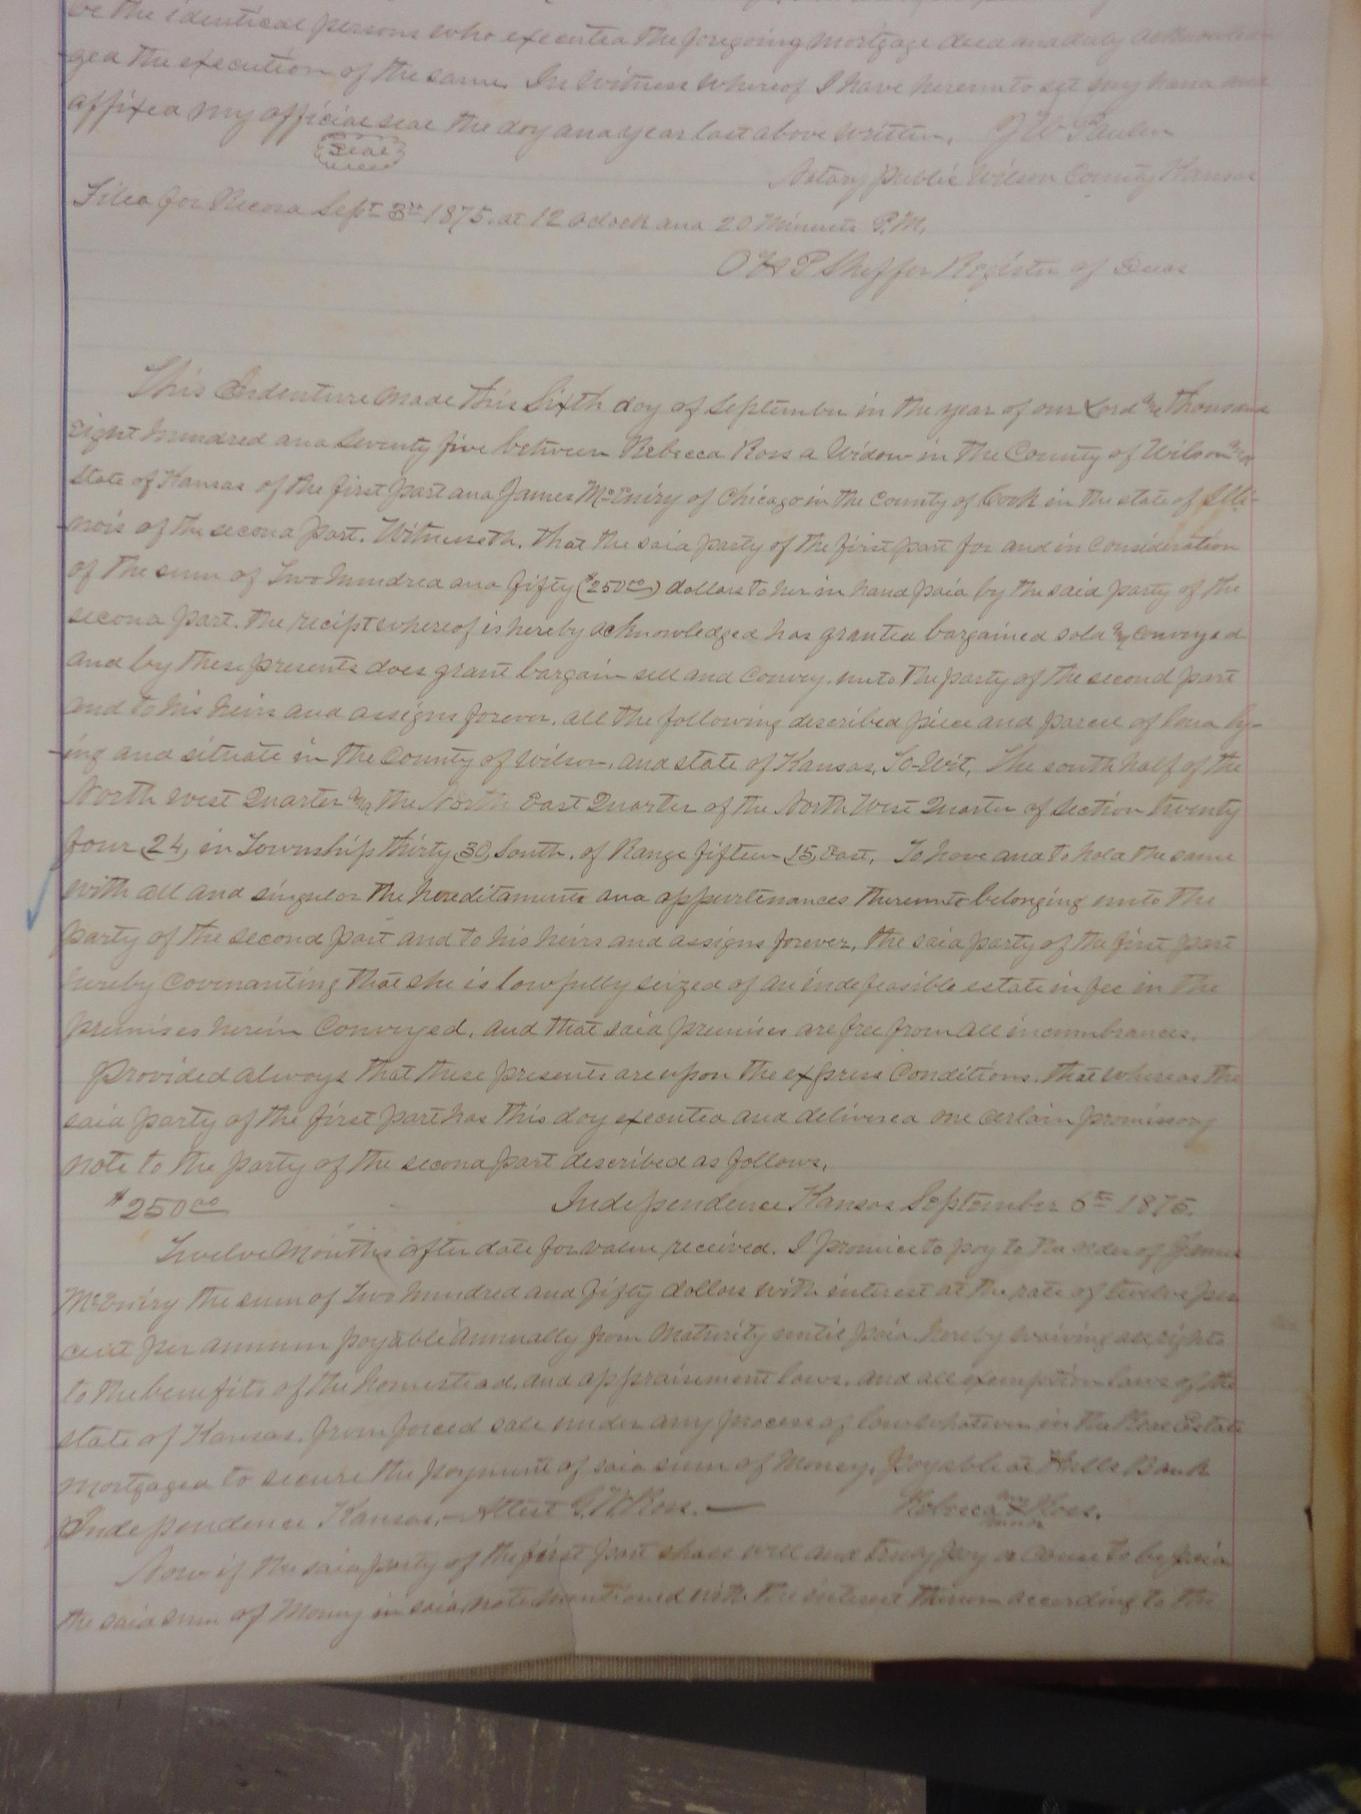 be the identical persons who executed the foregoing mortgage deed and duly acknowled-
ged the execution of the same. In witness whereof I have hereunto set my hand and
affixed my official seal the day and year last above written. J W Paulen
Seal
Notary Public Wilson County Kansas
Filed for Record Sept 3rd 1875. at 12 oclock and 20 Minuets P.M.
Sheffer Register of Deeds
This Indenture made this Sixth day of September in the year of our Lord one thousand
eight hundred and Seventy five between Rebecca Ross a Widow in the County of Wilson and
State of Kansas of the first part and James McEniry of Chicago in the County of Cook in the state of Illi-
nois of the second part. Witnesseth. that the said party of the first part for and in consideration
of the sum of Two hundred and fifty ($250 00) dollars to her in hand paid by the said party of the
second part. the recipt whereof is hereby acknowledged has granted bargained sold and conveyed
and by these presents does grant bargain sell and convey. unto the party of the second part
and to his heirs and assigns forever. all the following described piece and parcel of land ly-
ing and situate in the County of Wilson. and state of Kansas, To-Wit, The south half of the
North West Quarter and the North East Quarter of the North West Quarter of Section twenty
four 24, in Township thirty 30, South. of Range fifteen 15, East, To have and to hold the same
with all and singular the hereditaments and appurtenances thereunto belonging unto the
party of the second part and to his heirs and assigns forever, the said party of the first part
hereby covenanting that she is lawfully seized of an indefeasible estate in fee in the
premises herein conveyed. and that said premises are free from all incumbrances.
Provided always that these presents are upon the express conditions. that whereas the
said party of the first part has this day executed and delivered one certain promissory
note to the party of the second part described as follows,
$250 00 Independence Kansas September 6th 1875.
Twelve Months after date for value received. I promise to pay to the order of James
McEniry the sum of Two hundred and fifty dollars with interest at the rate of twelve per
cent per annum payable annually from maturity until paid. hereby waiving all rights
to the benefits of the homestead, and appraisement laws. and all exemption laws of the
state of Kansas. from forced sale under any process of law whatever in the Real Estate
mortgaged to secure the payment of said sum of Money, payable at Hulls Bank
Independence Kansas,— Attest G. W. Ross. — Rebecca her X mark Ross.
Now if the said party of the first part shall well and truly pay or cause to be paid
the said sum of Money in said note mentioned with the interest thereon according to the